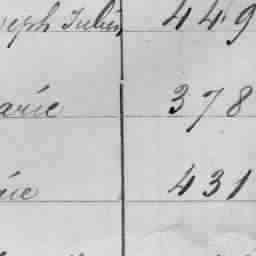 seph Julien 449
arie 378
ie 431